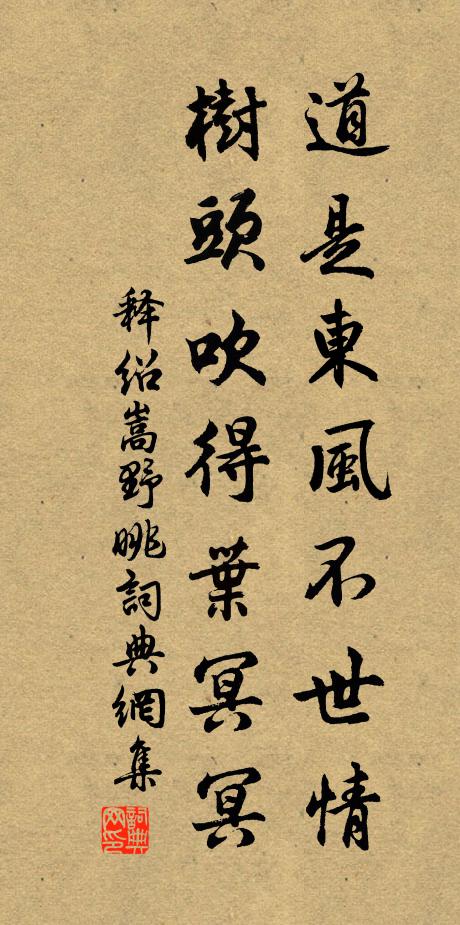 道是東風不世情
樹頭吹得葉冥冥
释绍嵩野眺詞典網集
詞典网印